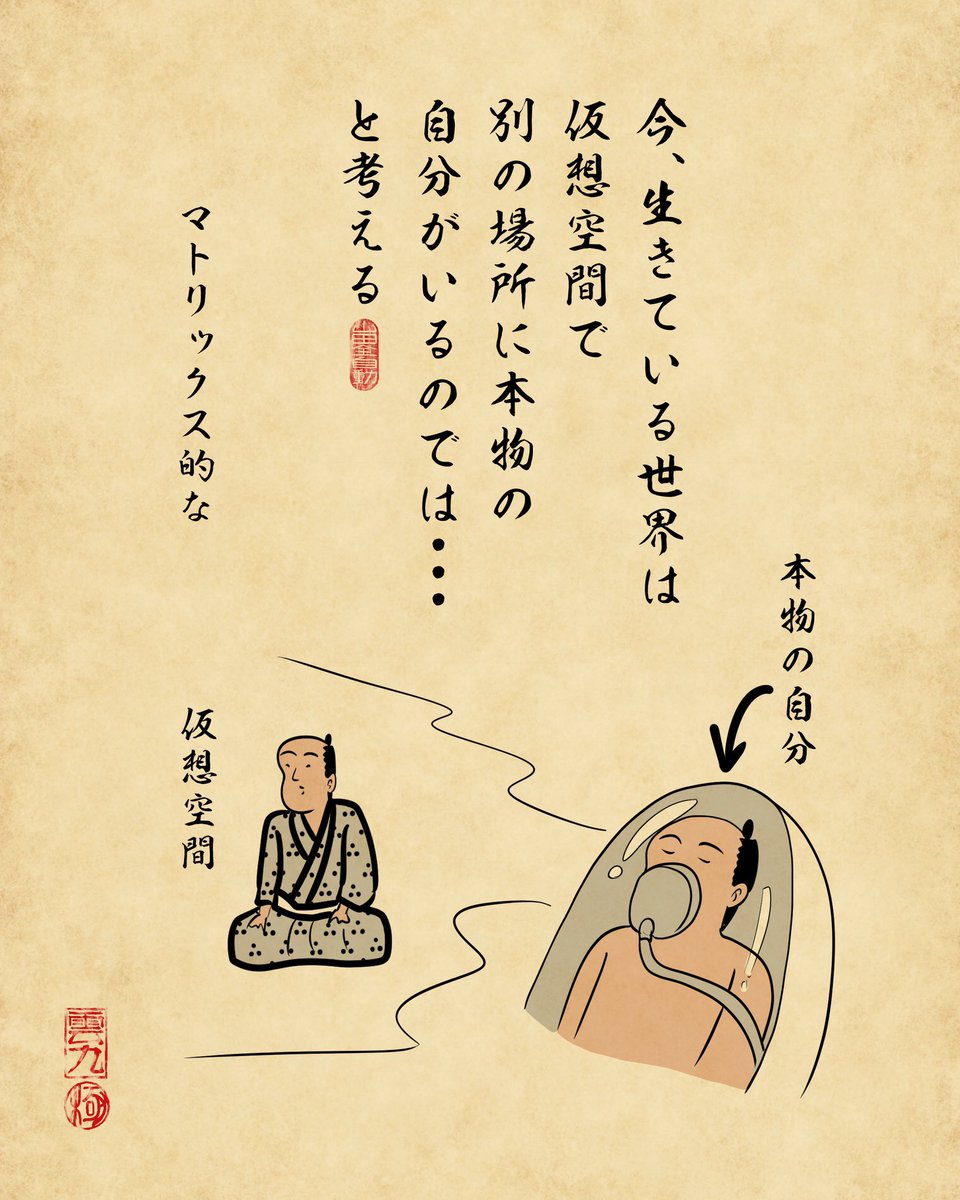 今、生きている世界は
仮想空間で
別の場所に本物の
自分がいるのでは・・・
と考える
マトリックス的な
本物の自分
仮想空間